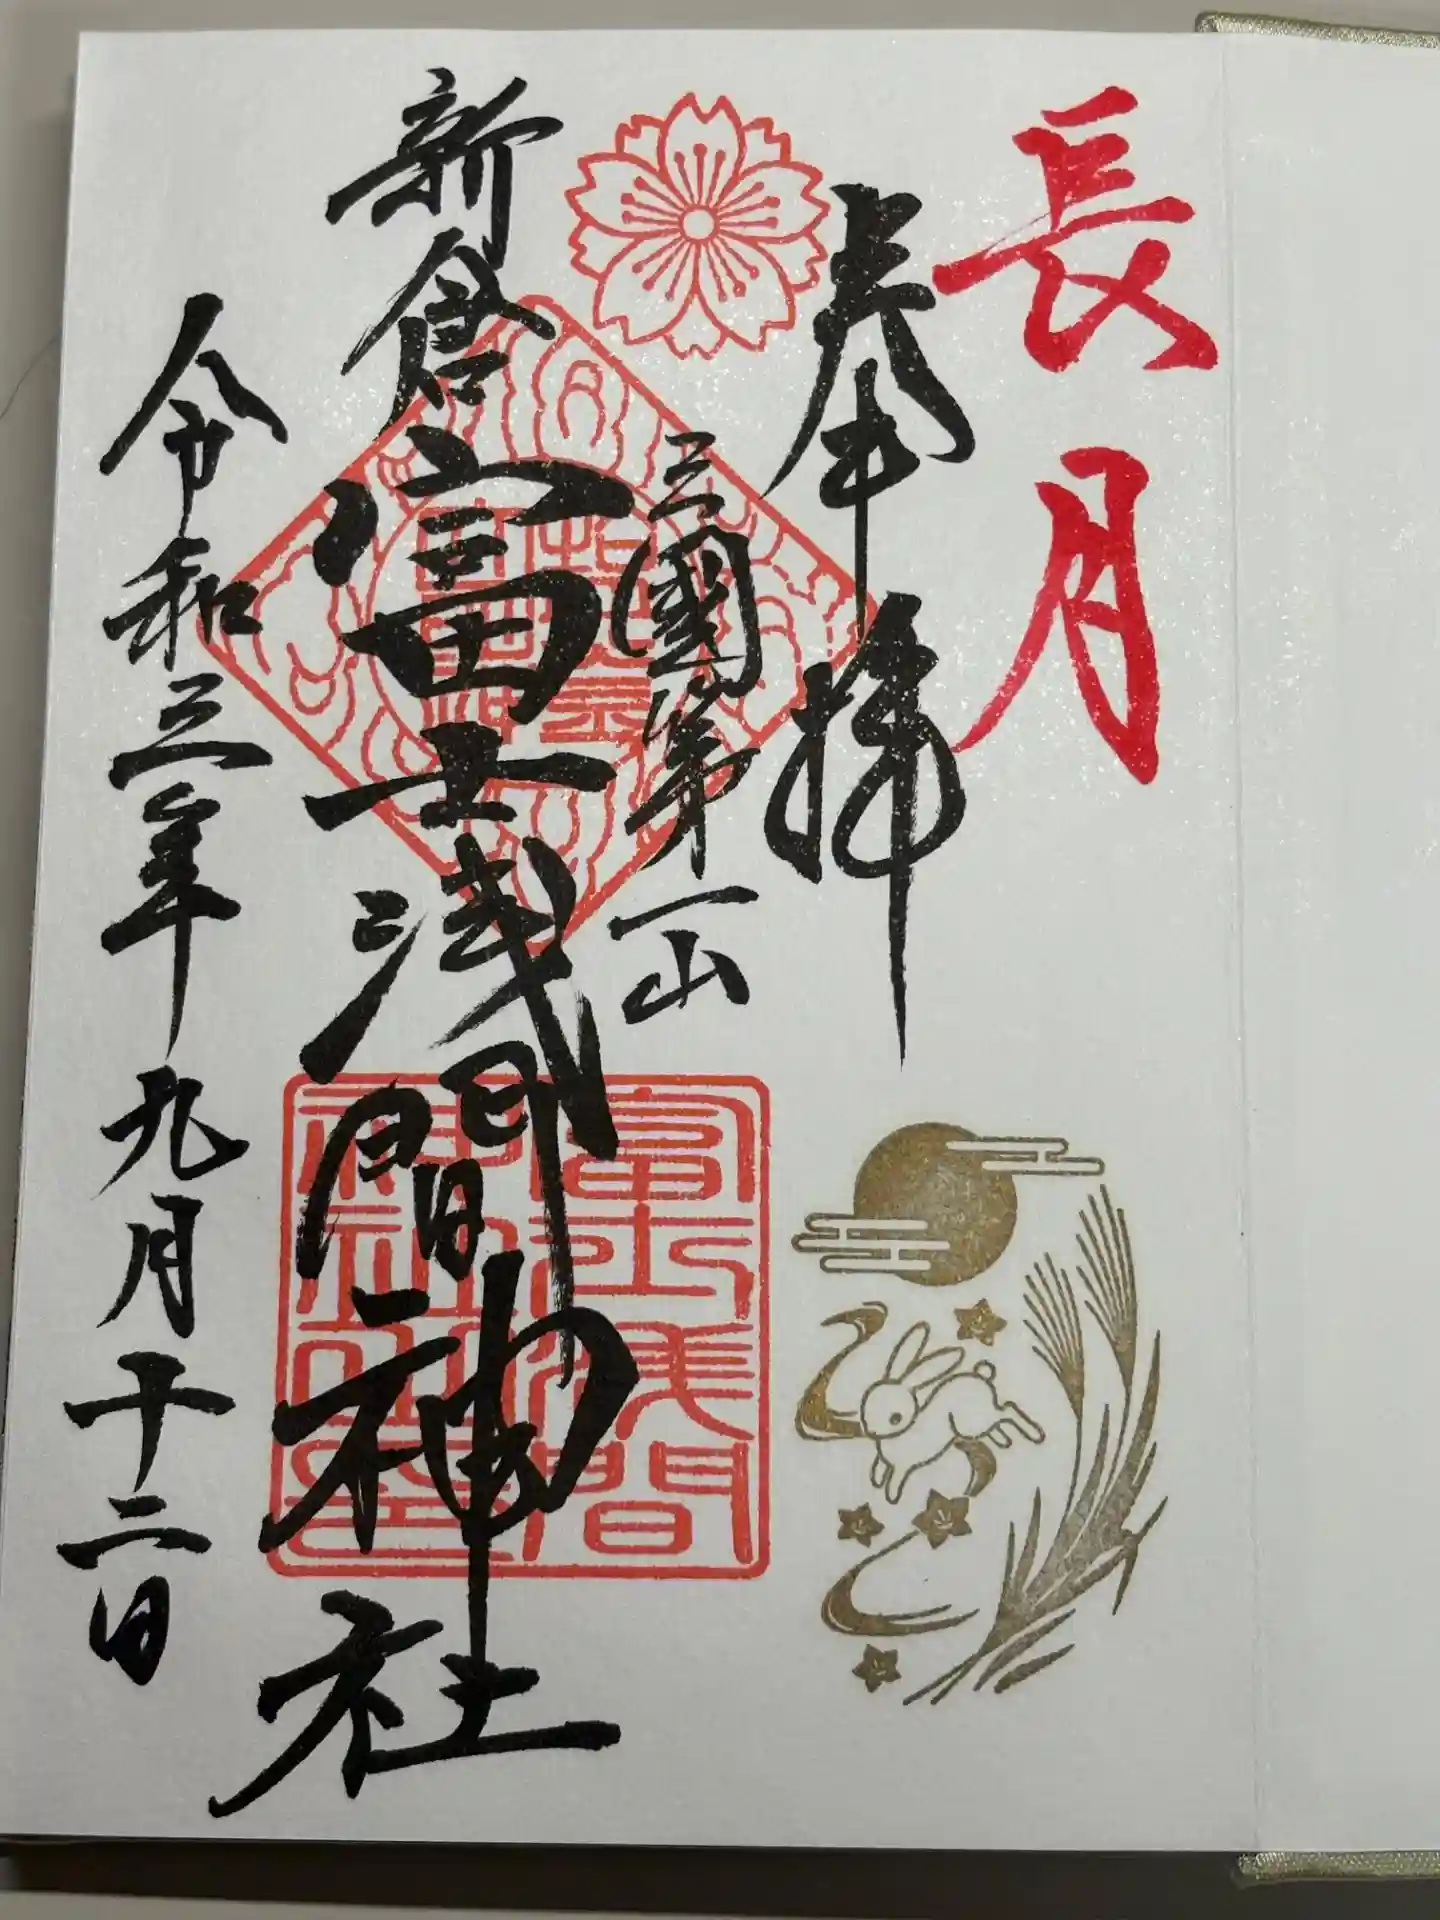 長月
奉拝
三國第一山
新倉富士浅間神社
令和三年九月十二日
富士浅間
神社